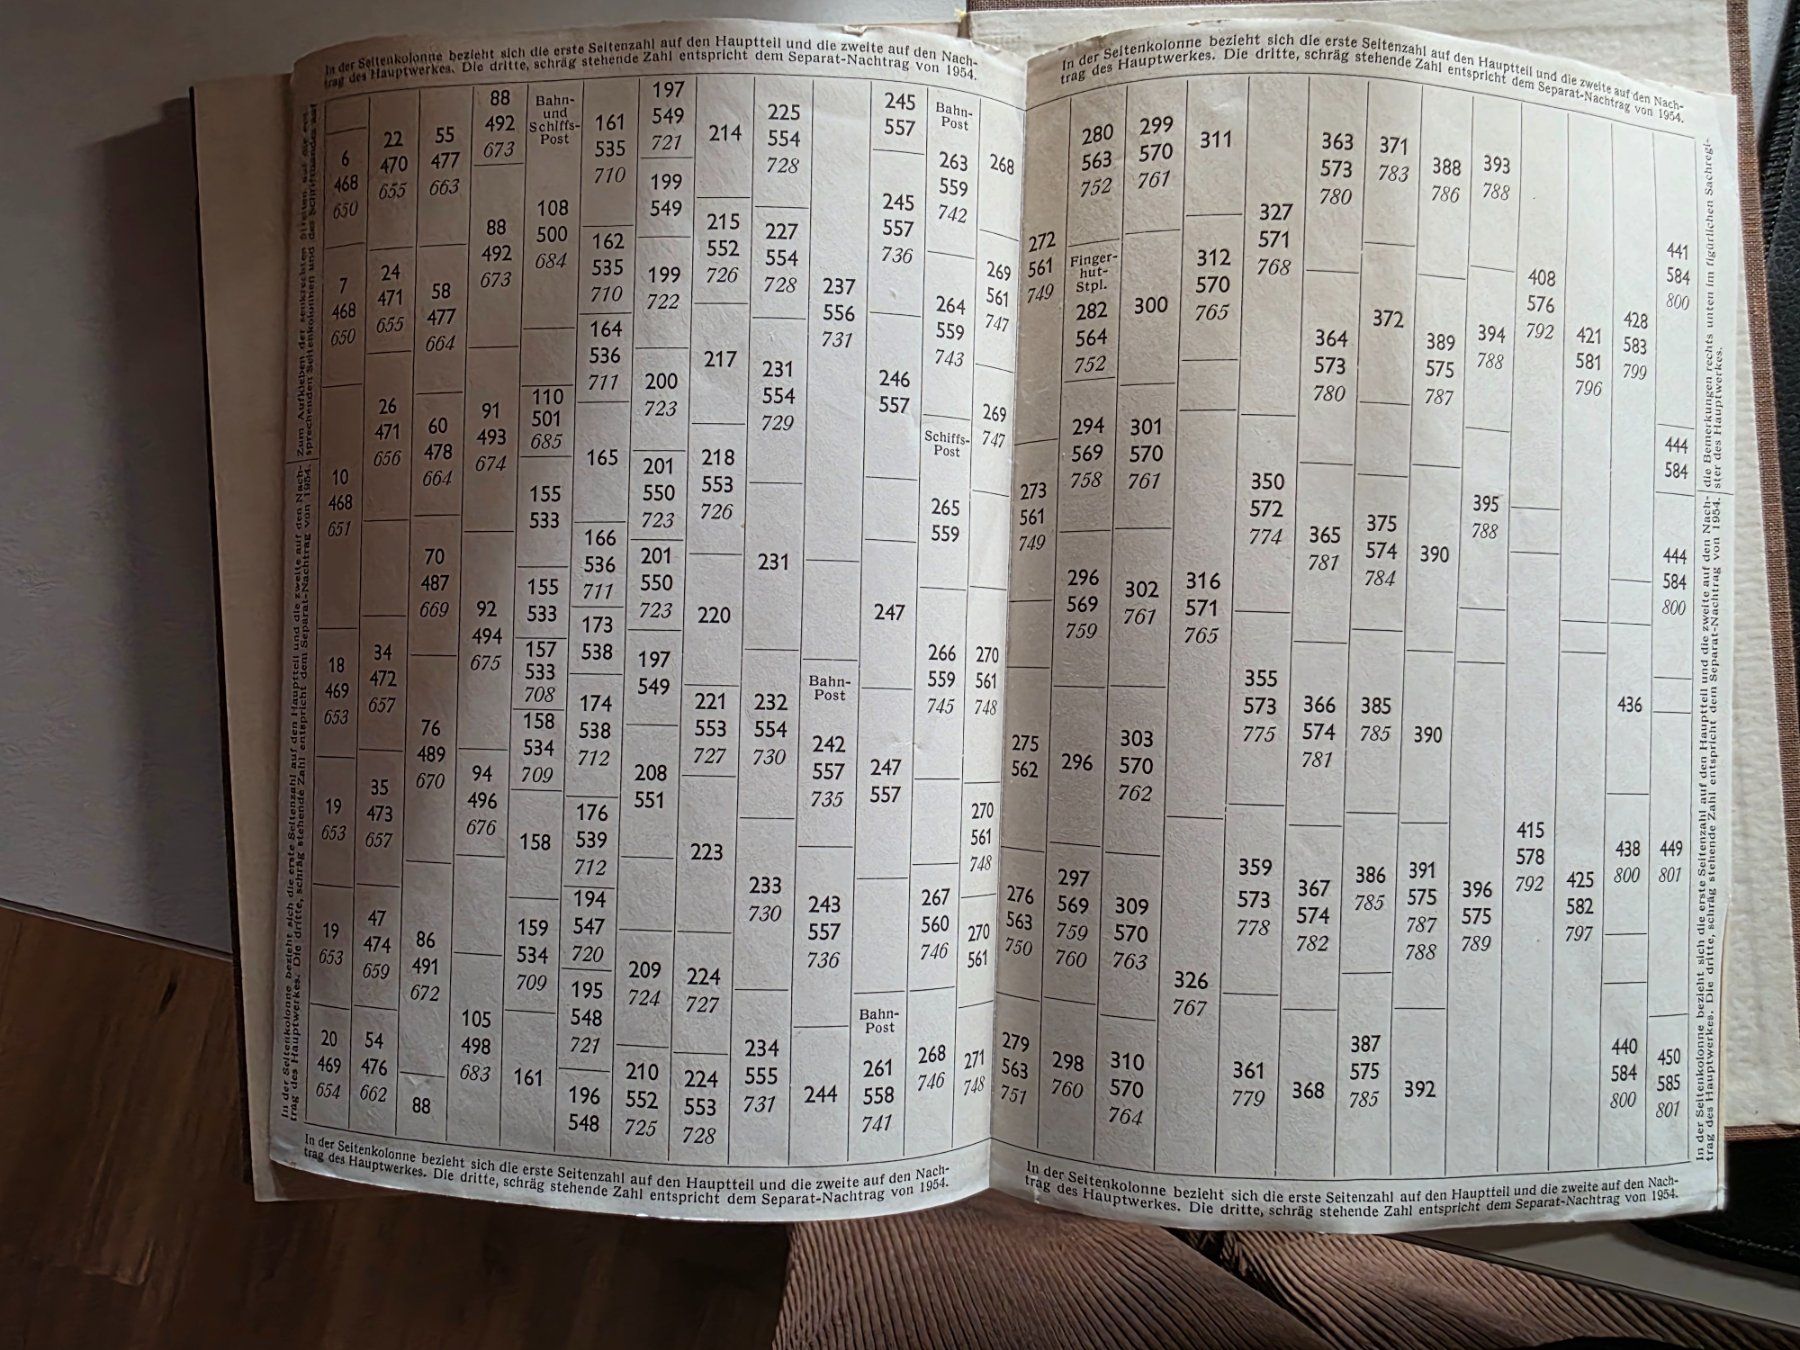 In der Seitenkolonne bezieht sich die erste Seitenzahl auf den Hauptteil und die zweite auf den Nach-
trag des Hauptwerkes. Die dritte, schräg stehende Zahl entspricht dem Separat-Nachtrag von 1954.
In der Seitenkolonne bezieht sich die erste Seitenzahl auf den Hauptteil und die zweite auf den Nach-
trag des Hauptwerkes. Die dritte, schräg stehende Zahl entspricht dem Separat-Nachtrag von 1954.
Zum Aufkleben der senkrechten Streifen auf die ent-
sprechenden Seitenkolonnen und des
6
468
650
7
468
650
10
468
651
18
469
653
19
653
19
653
20
469
654
22
470
655
24
471
655
26
471
656
34
472
657
35
473
657
47
474
659
54
476
662
55
477
663
58
477
664
60
478
664
70
487
669
76
489
670
86
491
672
88
88
492
673
88
492
673
91
493
674
92
494
675
94
496
676
105
498
683
Bahn-
und
Schiffs-
Post
108
500
684
110
501
685
155
533
155
533
157
533
708
158
534
709
158
159
534
709
161
161
535
710
162
535
710
164
536
711
165
166
536
711
173
538
174
538
712
176
539
712
194
547
720
195
548
721
196
548
197
549
721
199
549
199
722
200
723
201
550
723
201
550
723
197
549
208
551
209
724
210
552
725
214
215
552
726
217
218
553
726
220
221
553
727
223
224
727
224
553
728
225
554
728
227
554
728
231
554
729
231
232
554
730
233
730
234
555
731
237
556
731
Bahn-
Post
242
557
735
243
557
736
244
245
557
245
557
736
246
557
247
247
557
Bahn-
Post
261
558
741
Bahn-
Post
263
559
742
264
559
743
Schiffs-
Post
265
559
266
559
745
267
560
746
268
746
268
269
561
747
269
747
270
561
748
270
561
748
270
561
271
748
In der Seitenkolonne bezieht sich die erste Seitenzahl auf den Hauptteil und die zweite auf den Nach-
trag des Hauptwerkes. Die dritte, schräg stehende Zahl entspricht dem Separat-Nachtrag von 1954.
In der Seitenkolonne bezieht sich die erste Seitenzahl auf den Hauptteil und die zweite auf den Nach-
trag des Hauptwerkes. Die dritte, schräg stehende Zahl entspricht dem Separat-Nachtrag von 1954.
272
561
749
273
561
749
275
562
276
563
750
279
563
751
280
563
752
Finger-
hut-
Stpl.
282
564
752
294
569
758
296
569
759
296
297
569
759
760
298
760
299
570
761
300
301
570
761
302
761
303
570
762
309
570
763
310
570
764
311
312
570
765
316
571
765
326
767
327
571
768
350
572
774
355
573
775
359
573
778
361
779
363
573
780
364
573
780
365
781
366
574
781
367
574
782
368
371
783
372
375
574
784
385
785
386
785
387
575
785
388
786
389
575
787
390
390
391
575
787
788
392
393
788
394
788
395
788
396
575
789
408
576
792
415
578
792
421
581
796
425
582
797
428
583
799
436
438
800
440
584
800
441
584
800
444
584
444
584
800
449
801
450
585
801
In der Seitenkolonne bezieht sich die erste Seitenzahl auf den Hauptteil und die zweite auf den Nach-
trag des Hauptwerkes. Die dritte, schräg stehende Zahl entspricht dem Separat-Nachtrag von 1954.
die Bemerkungen rechts unten im figürlichen Sachregi-
ster des Hauptwerkes.
In der Seitenkolonne bezieht sich die erste Seitenzahl auf den Hauptteil und die zweite auf den Nach-
trag des Hauptwerkes. Die dritte, schräg stehende Zahl entspricht dem Separat-Nachtrag von 1954.